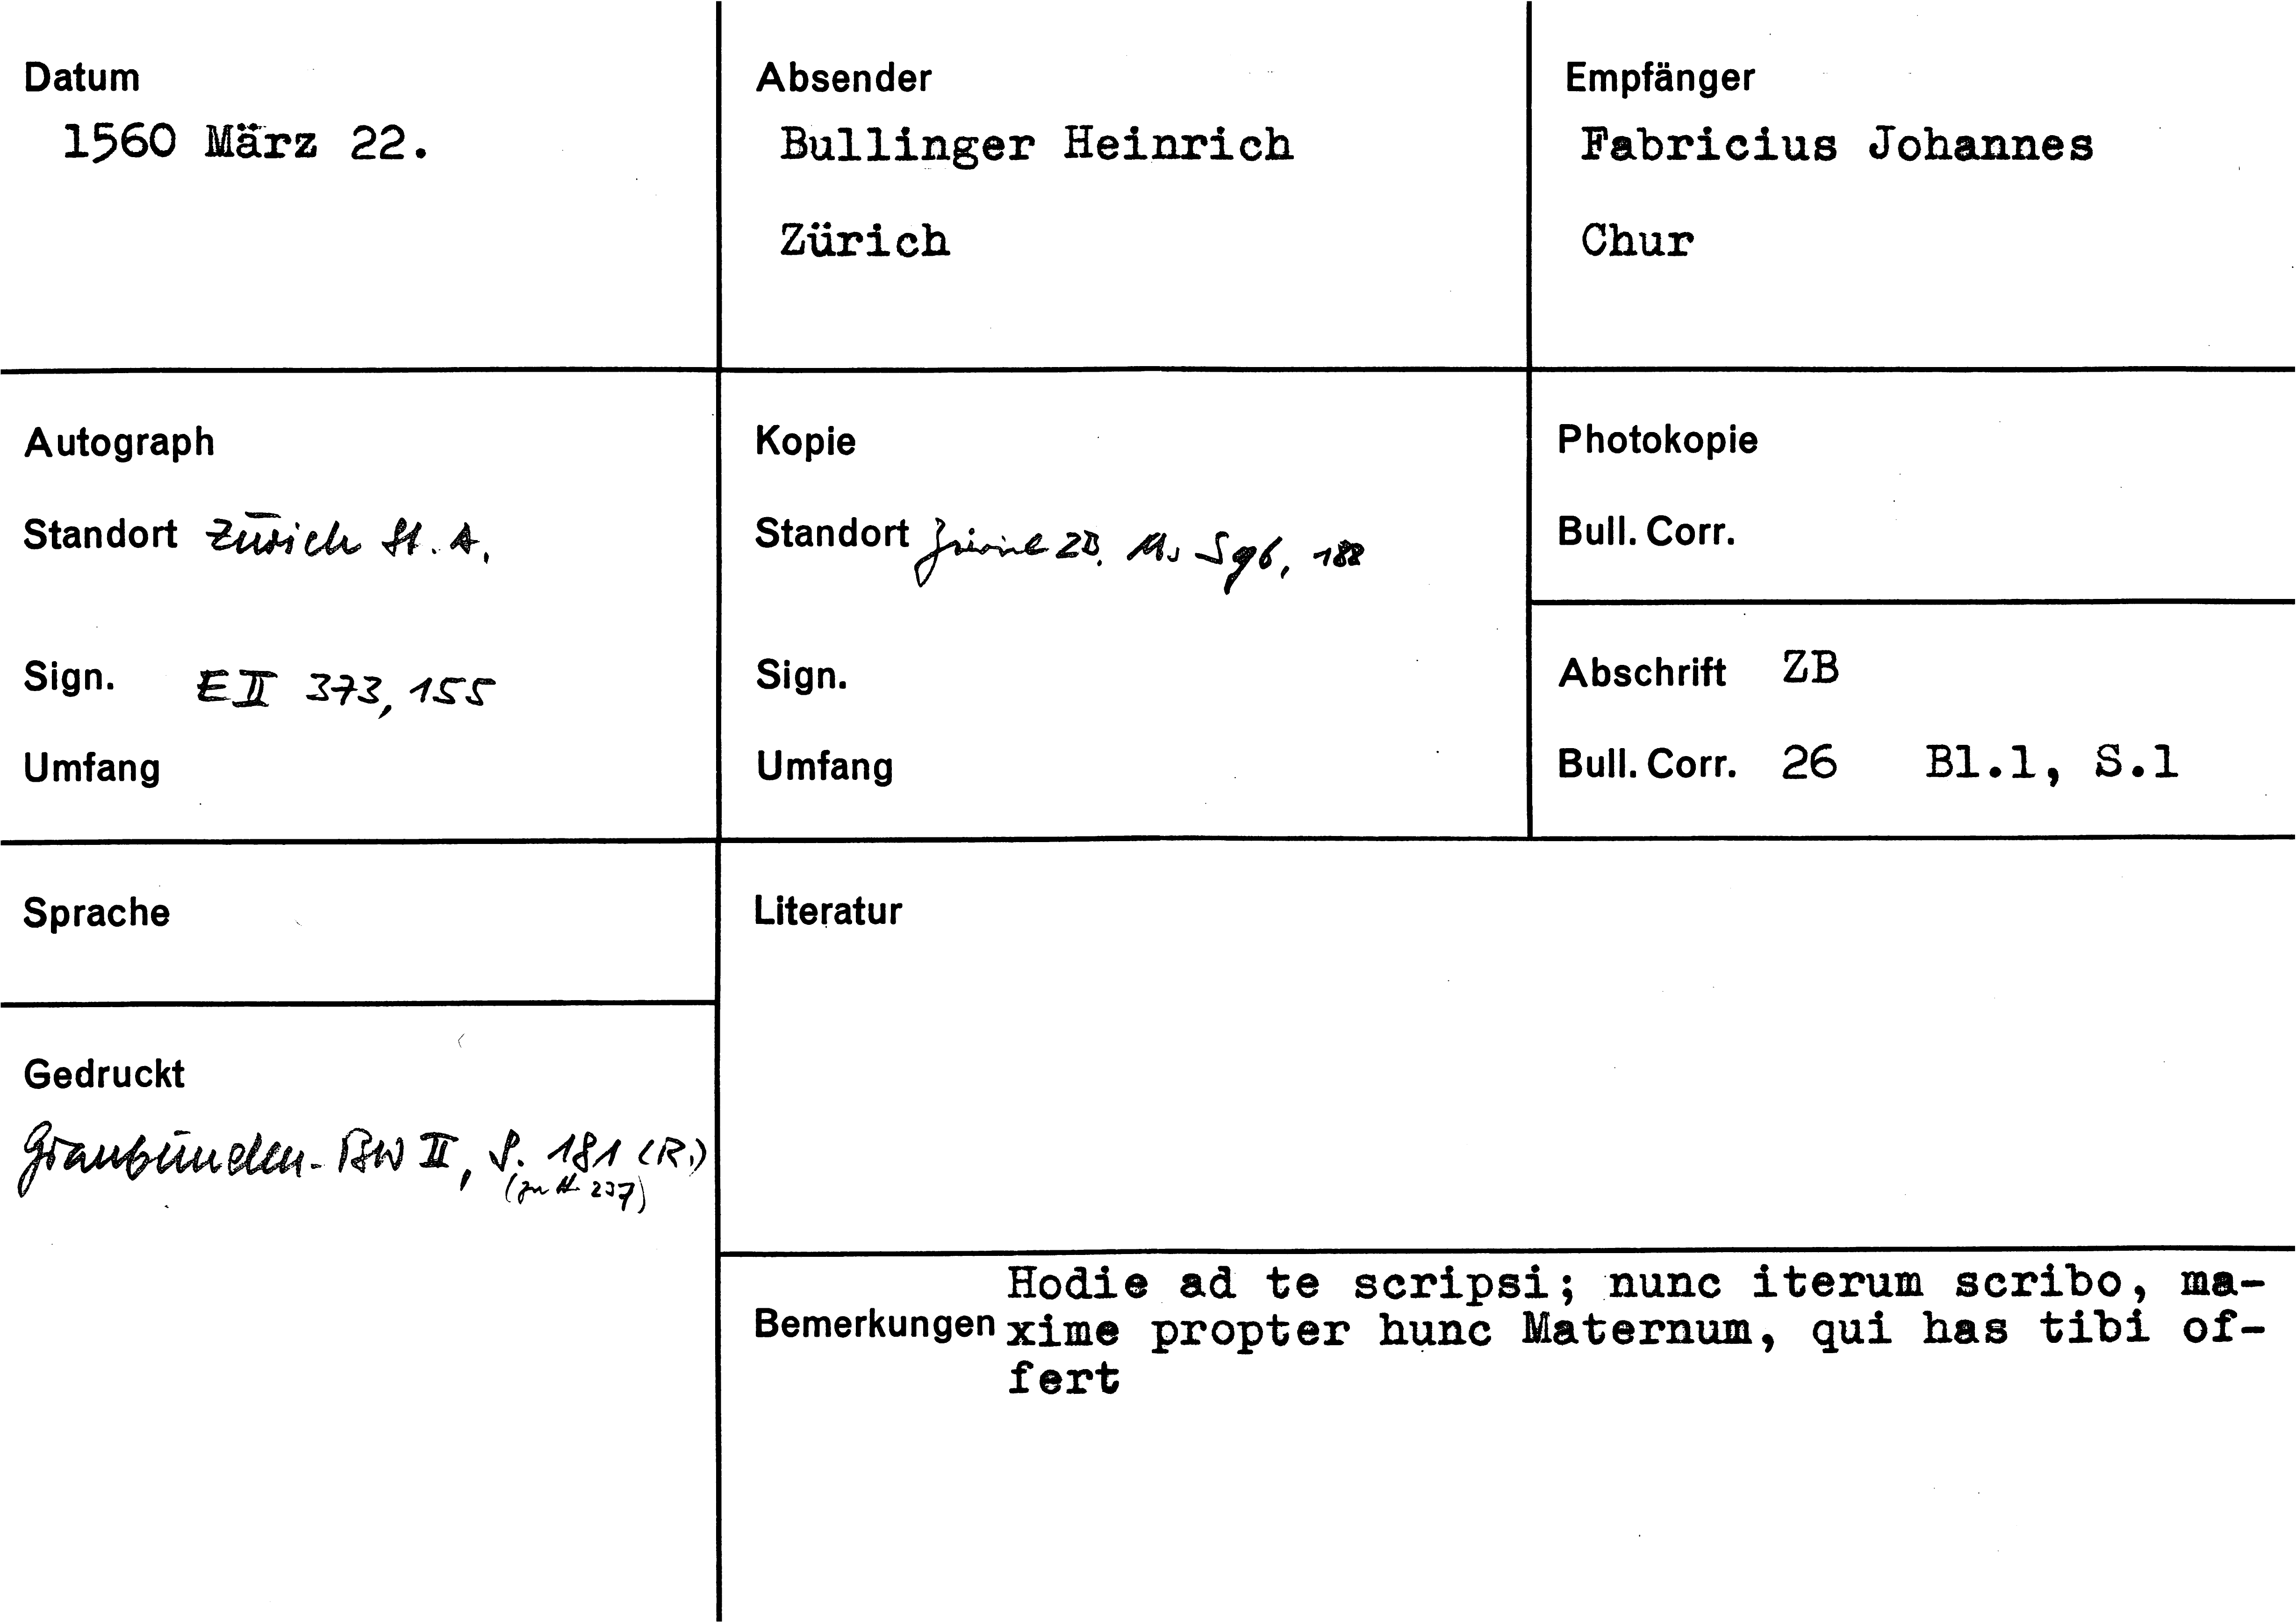 Datum
1560 März 22.
Absender
Bullinger Heinrich
Zürich
Empfänger
Fabricius Johannes
Chur
Autograph
Standort Zürich St. A.
Sign. E II 373, 155
Umfang
Kopie
Standort Zürich ZB. Ms S 96, 188
Sign.
Umfang
Photokopie
Bull. Corr.
Abschrift ZB
Bull. Corr. 26 Bl.1, S.1
Sprache
Gedruckt
Graubünden-BW II, S. 181 (R.)
(zu N. 237)
Literatur
Bemerkungen
Hodie ad te scripsi; nunc iterum scribo, ma-
xime propter hunc Maternum, qui has tibi of-
fert